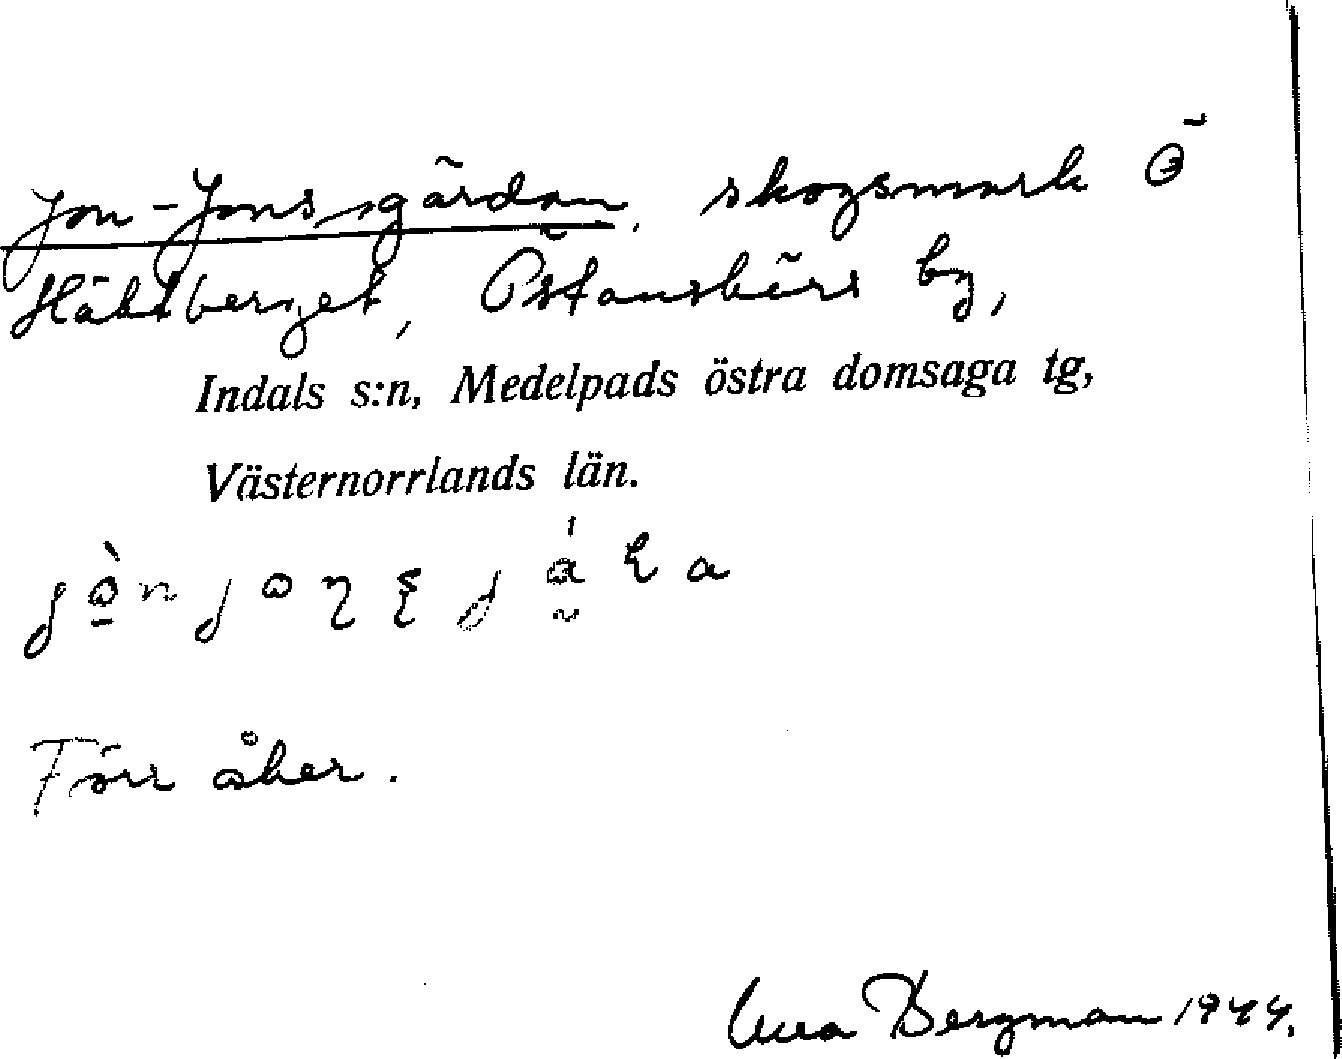 Jon-Jonsgärdan, skogsmark Ö
Häktberget, Östansbörs by,
Indals s:n, Medelpads östra domsaga tg,
Västernorrlands län.
Förr åker.
Bergman 1944.